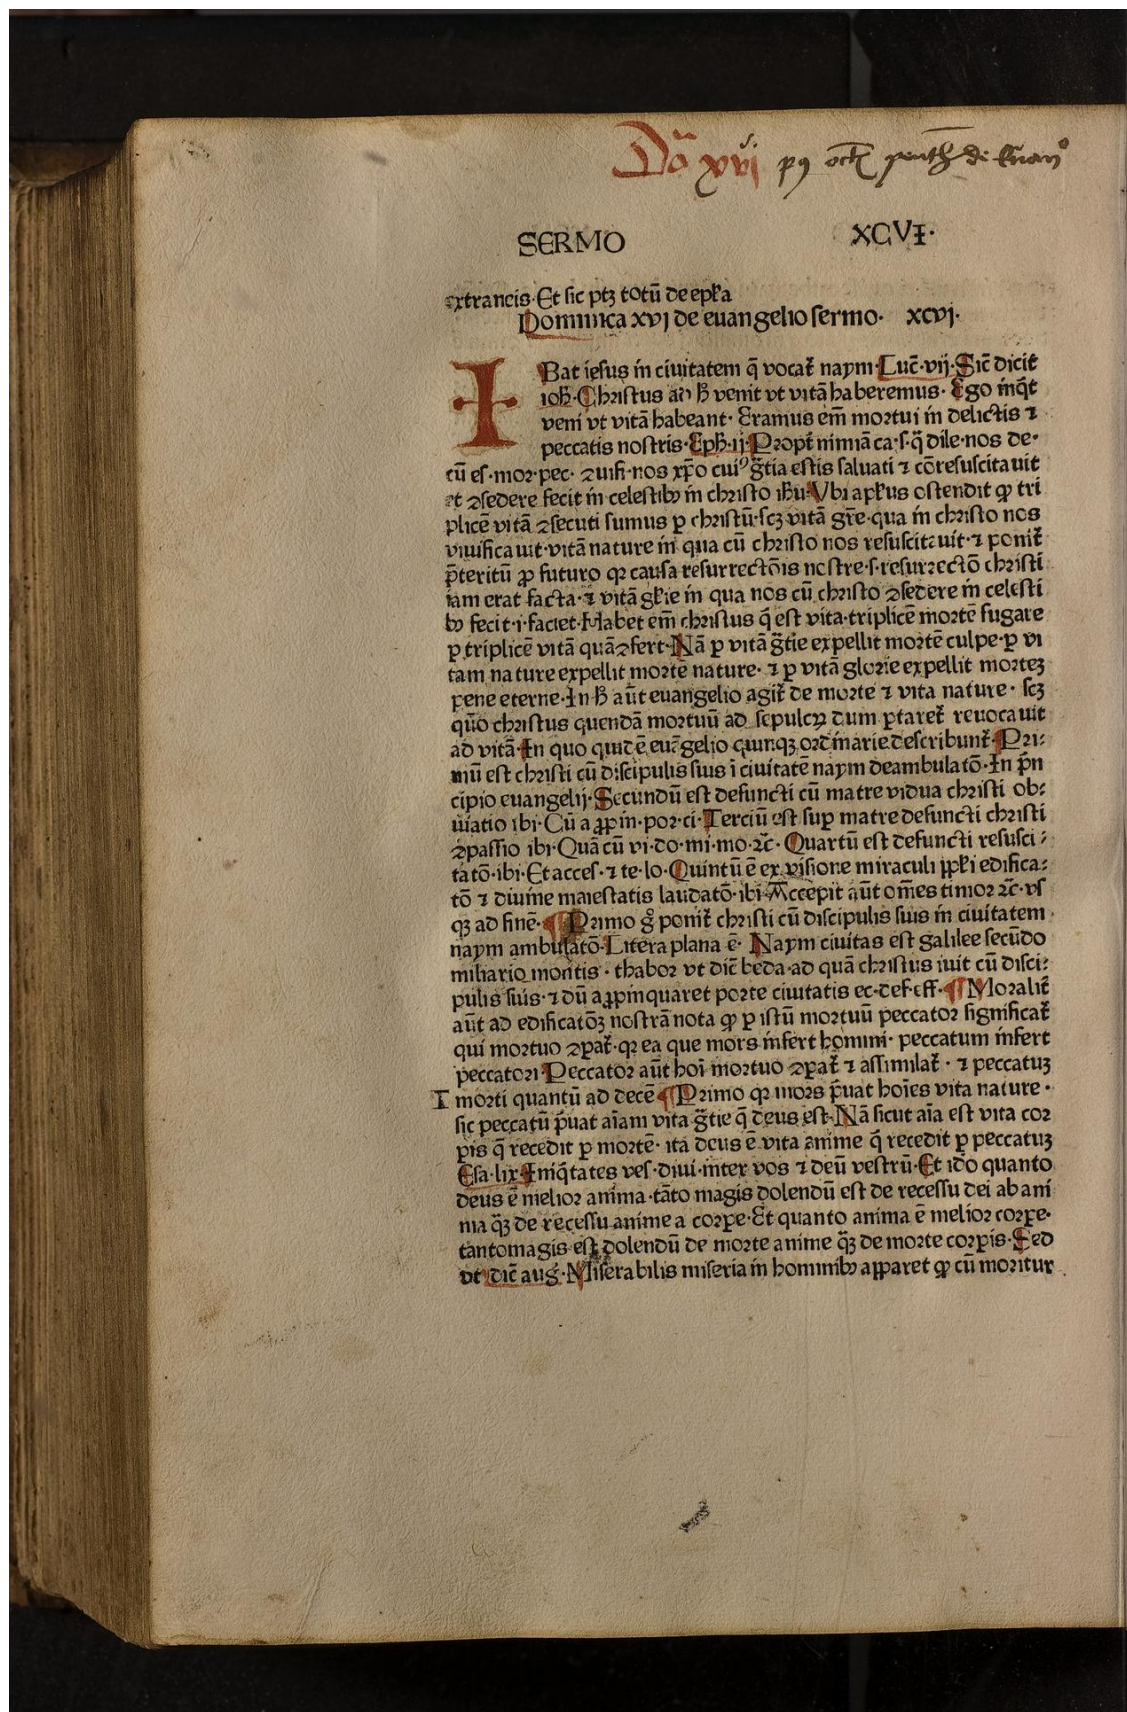 Dō xvj
SERMO XCVI·
extraneis·Et sic ptꝫ totū de epła
Dominica xvj de euangelio sermo· xcvj·
IBat iesus in ciuitatem q̄ vocat᷑ naym·Luc̄·vij·Sic̄ dicit
ioh̄·Christus ad h̄ venit vt vitā haberemus· Ego inq̄t
veni vt vitā habeant· Eramus em̄ mortui in delictis ⁊
peccatis nostris·Eph̄·ij·Propt̄ nimiā ca·s·q̄ dile·nos de·
cū es·mor·pec· ꝯuifi·nos xp̄o cuiꝰ gr̄tia estis saluati ⁊ cōresuscitauit
et ꝯsedere fecit in celestibꝫ in christo ih̄u·Vbi apl̄us ostendit ꝙ tri
plicē vitā ꝯsecuti sumus p christū·scꝫ vitā gr̄e·qua in christo nos
viuificauit·vitā nature in qua cū christo nos resuscitauit·⁊ ponit᷑
p̄teritū ꝓ futuro qꝛ causa resurrectōis nostre·s·resurrectō christi
iam erat facta·⁊ vitā gl̄ie in qua nos cū christo ꝯsedere in celesti
bꝫ fecit·i·faciet·Habet em̄ christus q̄ est vita·triplicē mortē fugare
p triplicē vitā quā ꝯfert·Nā p vitā gr̄tie expellit mortē culpe·p vi
tam nature expellit mortē nature· ⁊ p vitā glorie expellit morteꝫ
pene eterne·In h̄ aūt euangelio agit᷑ de morte ⁊ vita nature· scꝫ
quō christus quendā mortuū ad sepulcꝝ dum ptaret᷑ reuocauit
ad vitā·In quo quidē euāgelio quinqꝫ ordinarie describunt᷑·Pri:
mū est christi cū discipulis suis ī ciuitatē naym deambulatō·In p̄n
cipio euangelij·Secundū est defuncti cū matre vidua christi ob:
uiatio ibi·Cū aꝓpin·por·ci·Terciū est sup matre defuncti christi
ꝯpassio ibi·Quā cū vi·do·mi·mo·⁊c̄· Quartū est defuncti resusci:
tatō·ibi·Et acces·⁊ te·lo·Quintū ē ex visione miraculi ppl̄i edifica:
tō ⁊ diuine maiestatis laudatō·ibi·Accepit aūt om̄es timor ⁊c̄·vs
qꝫ ad finē· ¶ Primo gͦ ponit᷑ christi cū discipulis suis in ciuitatem
naym ambulatō·Litera plana ē· Naym ciuitas est galilee secūdo
miliario montis· thabor vt dic̄ beda·ad quā christus iuit cū disci:
pulis suis·⁊ dū aꝓpinquaret porte ciuitatis ec·def·eff· ¶ Moralit᷑
aūt ad edificatōꝫ nostrā nota ꝙ p istū mortuū peccator significat᷑
qui mortuo ꝯpat᷑·qꝛ ea que mors infert homini· peccatum infert
peccatori·Peccator aūt hoī mortuo ꝯpat᷑ ⁊ assimilat᷑· ⁊ peccatuꝫ
I morti quantū ad decē ¶ Primo qꝛ mors p̄uat hoīes vita nature·
sic peccatū p̄uat aīam vita gr̄tie q̄ deus est·Nā sicut aīa est vita cor
pis q̄ recedit p mortē· ita deus ē vita anime q̄ recedit p peccatuꝫ
Esa·lix·Iniq̄tates vef·diui·inter vos ⁊ deū vestrū·Et idō quanto
deus ē melior anima·tāto magis dolendū est de recessu dei ab ani
ma q̄ꝫ de recessu anime a corpe·Et quanto anima ē melior corpe·
tantomagis est dolendū de morte anime q̄ꝫ de morte corpis·Sed
vt dic̄ aug·Miserabilis miseria in hominibꝫ apparet ꝙ cū moritur